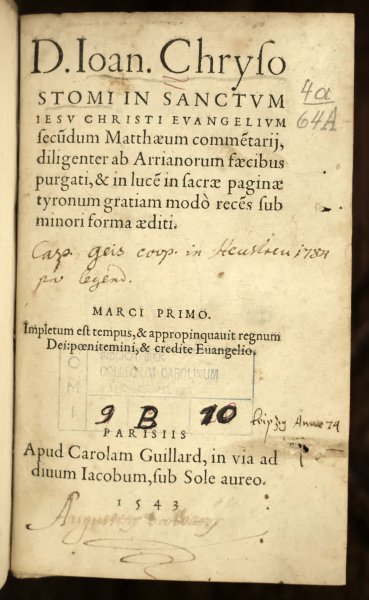 D. Ioan. Chryso
STOMI IN SANCTVM
IESV CHRISTI EVANGELIVM
secũdum Matthæum commẽtarij,
diligenter ab Arrianorum fæcibus
purgati, & in lucẽ in sacræ paginæ
tyronum gratiam modò recẽs sub
minori forma æditi.
4a
64A
Casp. geis coop. in
pro legend.
MARCI PRIMO.
Impletum est tempus, & appropinquauit regnum
Dei: pœnitemini, & credite Euangelio.
COLLEGIUM CAROLINUM
9 B 10
Leipzig Anno 74
PARISIIS
Apud Carolam Guillard, in via ad
diuum Iacobum, sub Sole aureo.
1543